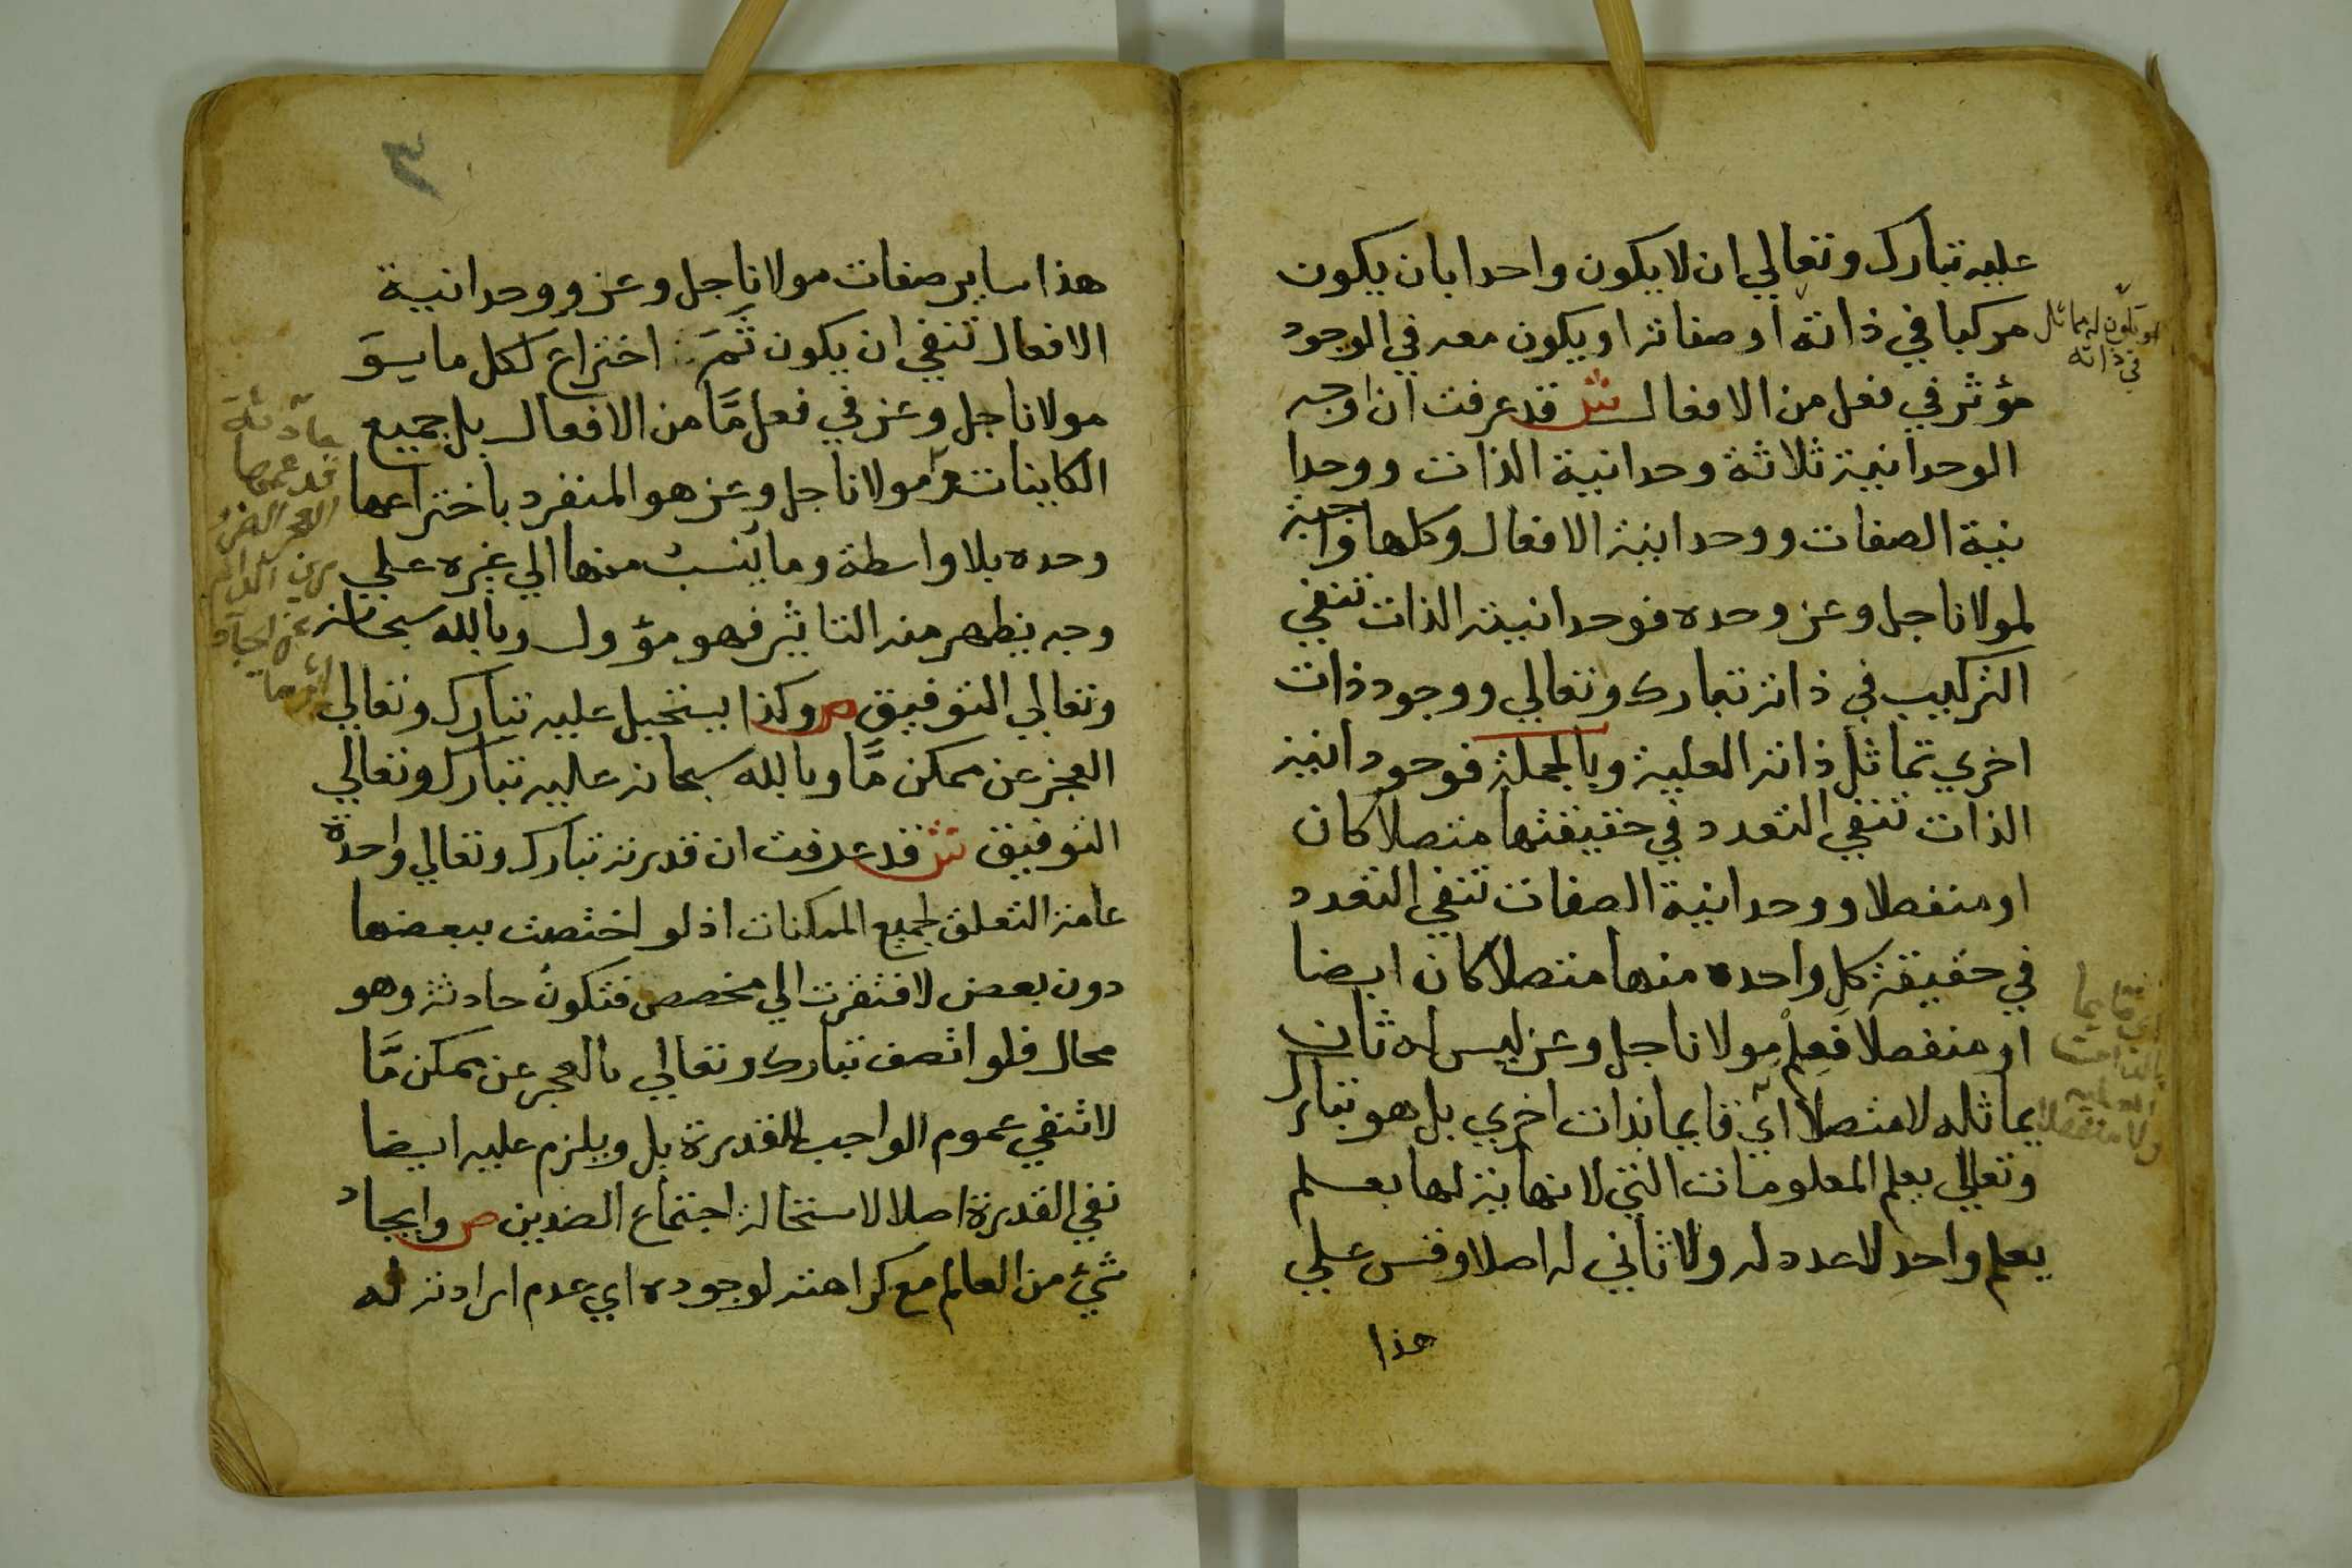 عليه تبارك وتعالي ان لا يكون واحدا بان يكون
مركبا في ذاته او صفاته او يكون معه في الوجود
او يكون له مماثل
في ذاته
مؤثر في فعل من الافعال ش قد عرفت ان اوجه
الوحدانية ثلاثة وحدانية الذات ووحدا
نية الصفات ووحدانية الافعال وكلها واجبة
لمولانا جل وعز وحده فوحدانية الذات تنفي
التركيب في ذاته تبارك وتعالي ووجود ذات
اخري تماثل ذاته العلية وبالجملة فوحودانية
الذات تنفي التعدد في حقيقتها متصلا كان
او منفصلا ووحدانية الصفات تنفي التعدد
في حقيقة كل واحده منها متصلا كان ايضا
او منفصلا فعلم مولانا جل وعز ليس له ثان
يماثله لا متصلا اي قايما بذات اخري بل هو تبارك
ولا منفصلا
وتعالي يعلم المعلومات التي لا نهاية لها بعلم
بعلم واحد لا عدد له ولا ثاني له اصلا وقس علي
هذا
٣
هذا ساير صفات مولانا جل وعز ووحدانية
الافعال تنفي ان يكون ثم اختراع لكل ما يسوَ
مولانا جل وعز في فعل مَّا من الافعال بل جميع
الكاينات مولانا جل وعز هو المنفرد باختراعها
حادثة
قد عمها
العجز الضرو
ري الدايم
عن ايجاد
اثر ما
وحده بلا واسطة وما ينسب منها الي غيره علي
وجه يظهر منه التاثير فهو مؤول وبالله سبحانه
وتعالي التوفيق ص وكذا يستحيل عليه تبارك وتعالي
العجز عن ممكن مَّا وبالله سبحانه عليه تبارك وتعالي
التوفيق ش قد عرفت ان قدرته تبارك وتعالي واحدة
عامة التعلق لجميع الممكنات اذ لو اختصت ببعضها
دون بعض لافتقرت الي مخصص فتكون حادثة وهو
محال فلو اتصف تبارك وتعالي بالعجز عن ممكن مَّا
لانتفي عموم الواجب للقدرة بل ويلزم عليه ايضا
نفي القدرة اصلا لاستحالة اجتماع الضدين ص وايجاد
شيء من العالم مع كراهته لوجوده اي عدم ارادته له